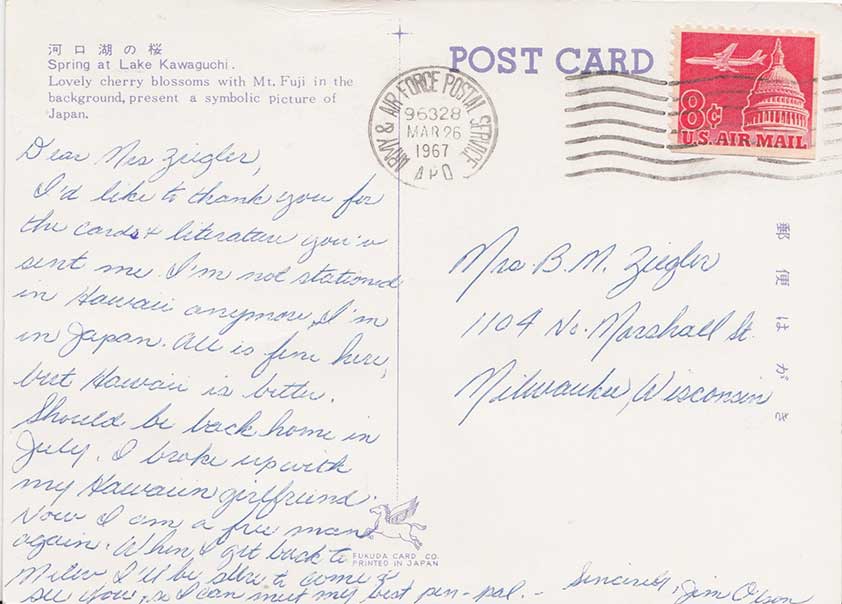 河口湖の桜
Spring at Lake Kawaguchi.
Lovely cherry blossoms with Mt. Fuji in the
background, present a symbolic picture of
Japan.
POST CARD
ARMY & AIR FORCE POSTAL SERVICE
96328
MAR 26
1967
APO
8¢
U.S. AIR MAIL
Dear Mrs Ziegler,
I'd like to thank you for
the cards & literature you'v
sent me. I'm not stationed
in Hawaii anymore, I'm
in Japan. All is fine here,
but Hawaii is better.
Should be back home in
July. I broke up with
my Hawaiin girlfriend.
Now I am a free man
again. When I get back to
Milw I'll be able to come &
see you, so I can meet my best pen-pal. -
Sincerely, Jim Olson
Mrs B. M. Ziegler
1104 No. Marshall St.
Milwaukee, Wisconsin
郵便はがき
FUKUDA CARD CO.
PRINTED IN JAPAN